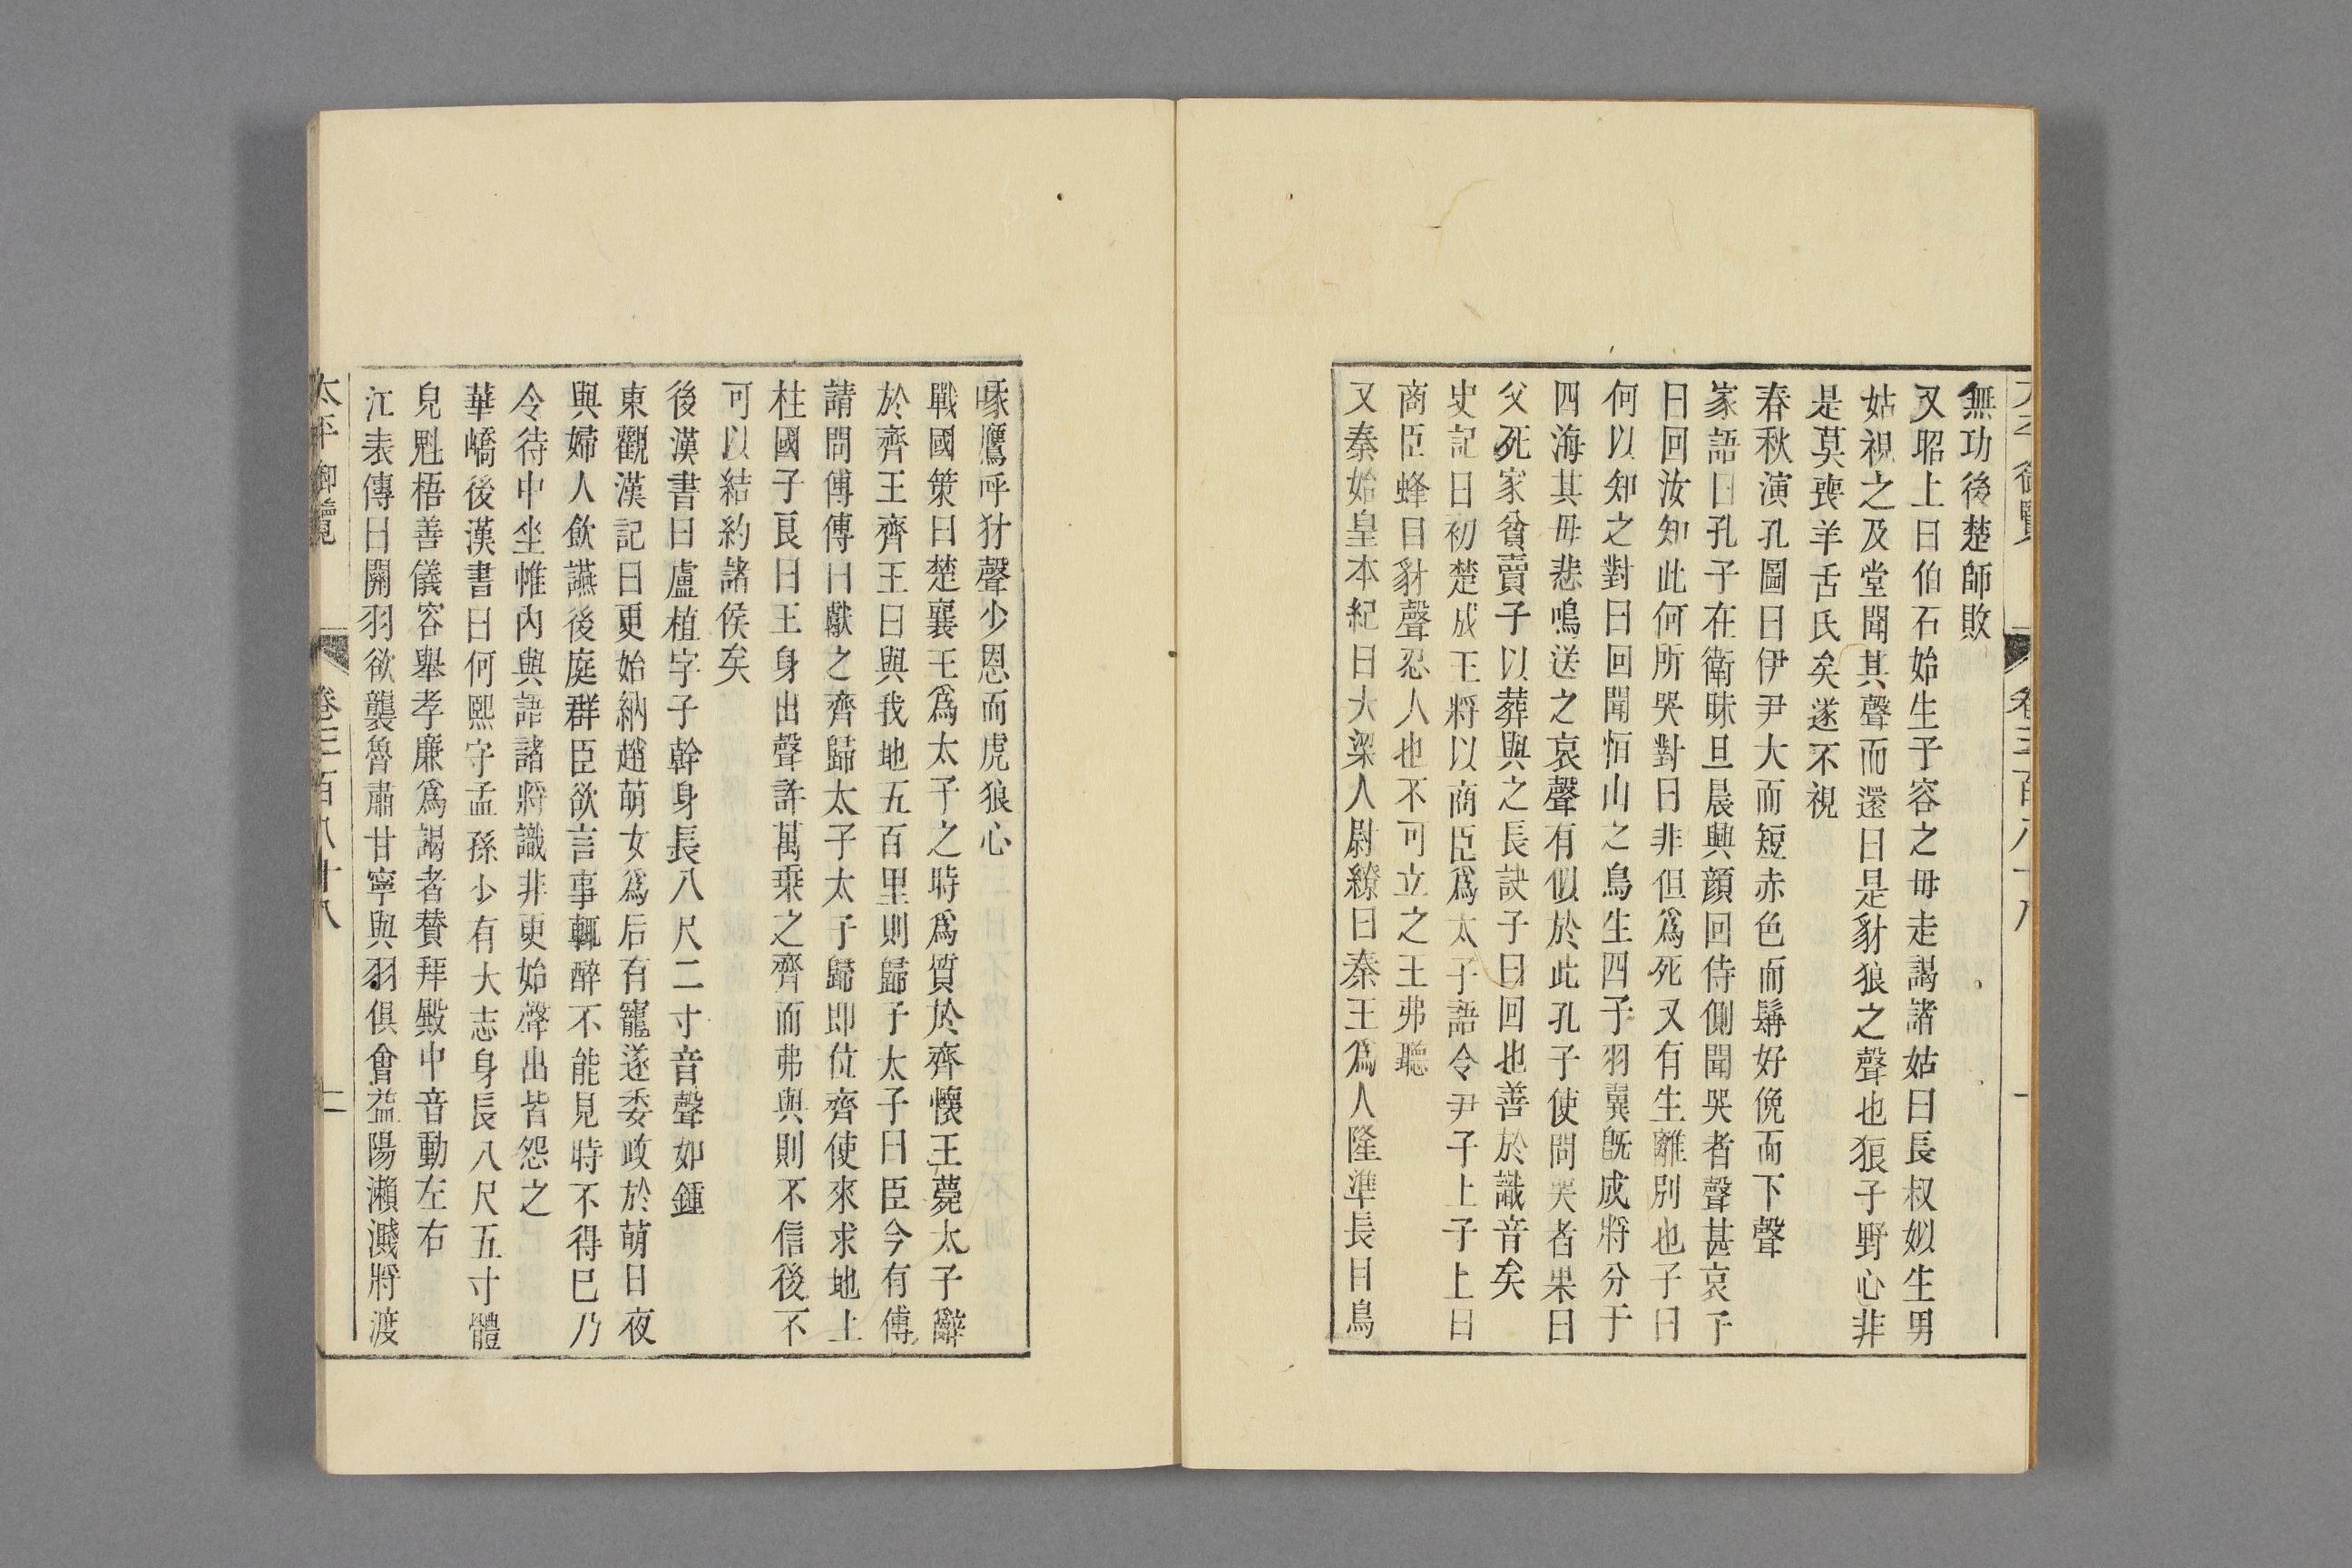 無功後楚師敗
又昭上曰伯石始生子容之毋走謁諸姑曰長叔姒生男
姑視之及堂聞其聲而還曰是豺狼之聲也狼子野心非
是莫喪羊舌氏矣遂不視
春秋演孔圖曰伊尹大而短赤色而髯好俛而下聲
家語曰孔子在衛昧旦晨興顔回侍側聞哭者聲甚哀子
曰回汝知此何所哭對曰非但爲死又有生離别也子曰
何以知之對曰回聞恒山之鳥生四子羽翼旣成將分于
四海其毋悲鳴送之哀聲有似於此孔子使問哭者果曰
父死家貧賣子以葬與之長訣子曰回也善於識音矣
史記曰初楚成王將以商臣爲太子語令尹子上子上曰
商臣蜂目豺聲忍人也不可立之王弗聽
又秦始皇本紀曰大梁人尉繚曰秦王爲人隆準長目鳥
喙鷹呼豺聲少恩而虎狼心
戰國策曰楚襄王爲太子之時爲質於齊懷王薨太子辭
於齊王齊王曰與我地五百里則歸子太子曰臣今有傅
請問傅傅曰獻之齊歸太子太子歸即位齊使來求地上
柱國子良曰王身出聲許萬乗之齊而弗與則不信後不
可以結約諸侯矣
後漢書曰盧植字子幹身長八尺二寸音聲如鍾
東觀漢記曰更始納趙萌女爲后有寵遂委政於萌日夜
與婦人飲讌後庭群臣欲言事輒醉不能見時不得已乃
令待中坐帷内與語諸將識非更始聲出皆怨之
華嶠後漢書曰何熙字孟孫少有大志身長八尺五寸體
皃魁梧善儀容舉孝廉爲謁者賛拜殿中音動左右
江表傳曰關羽欲襲魯肅甘寧與羽俱會益陽瀨濺將渡
太平御覽 卷三百八十八 二